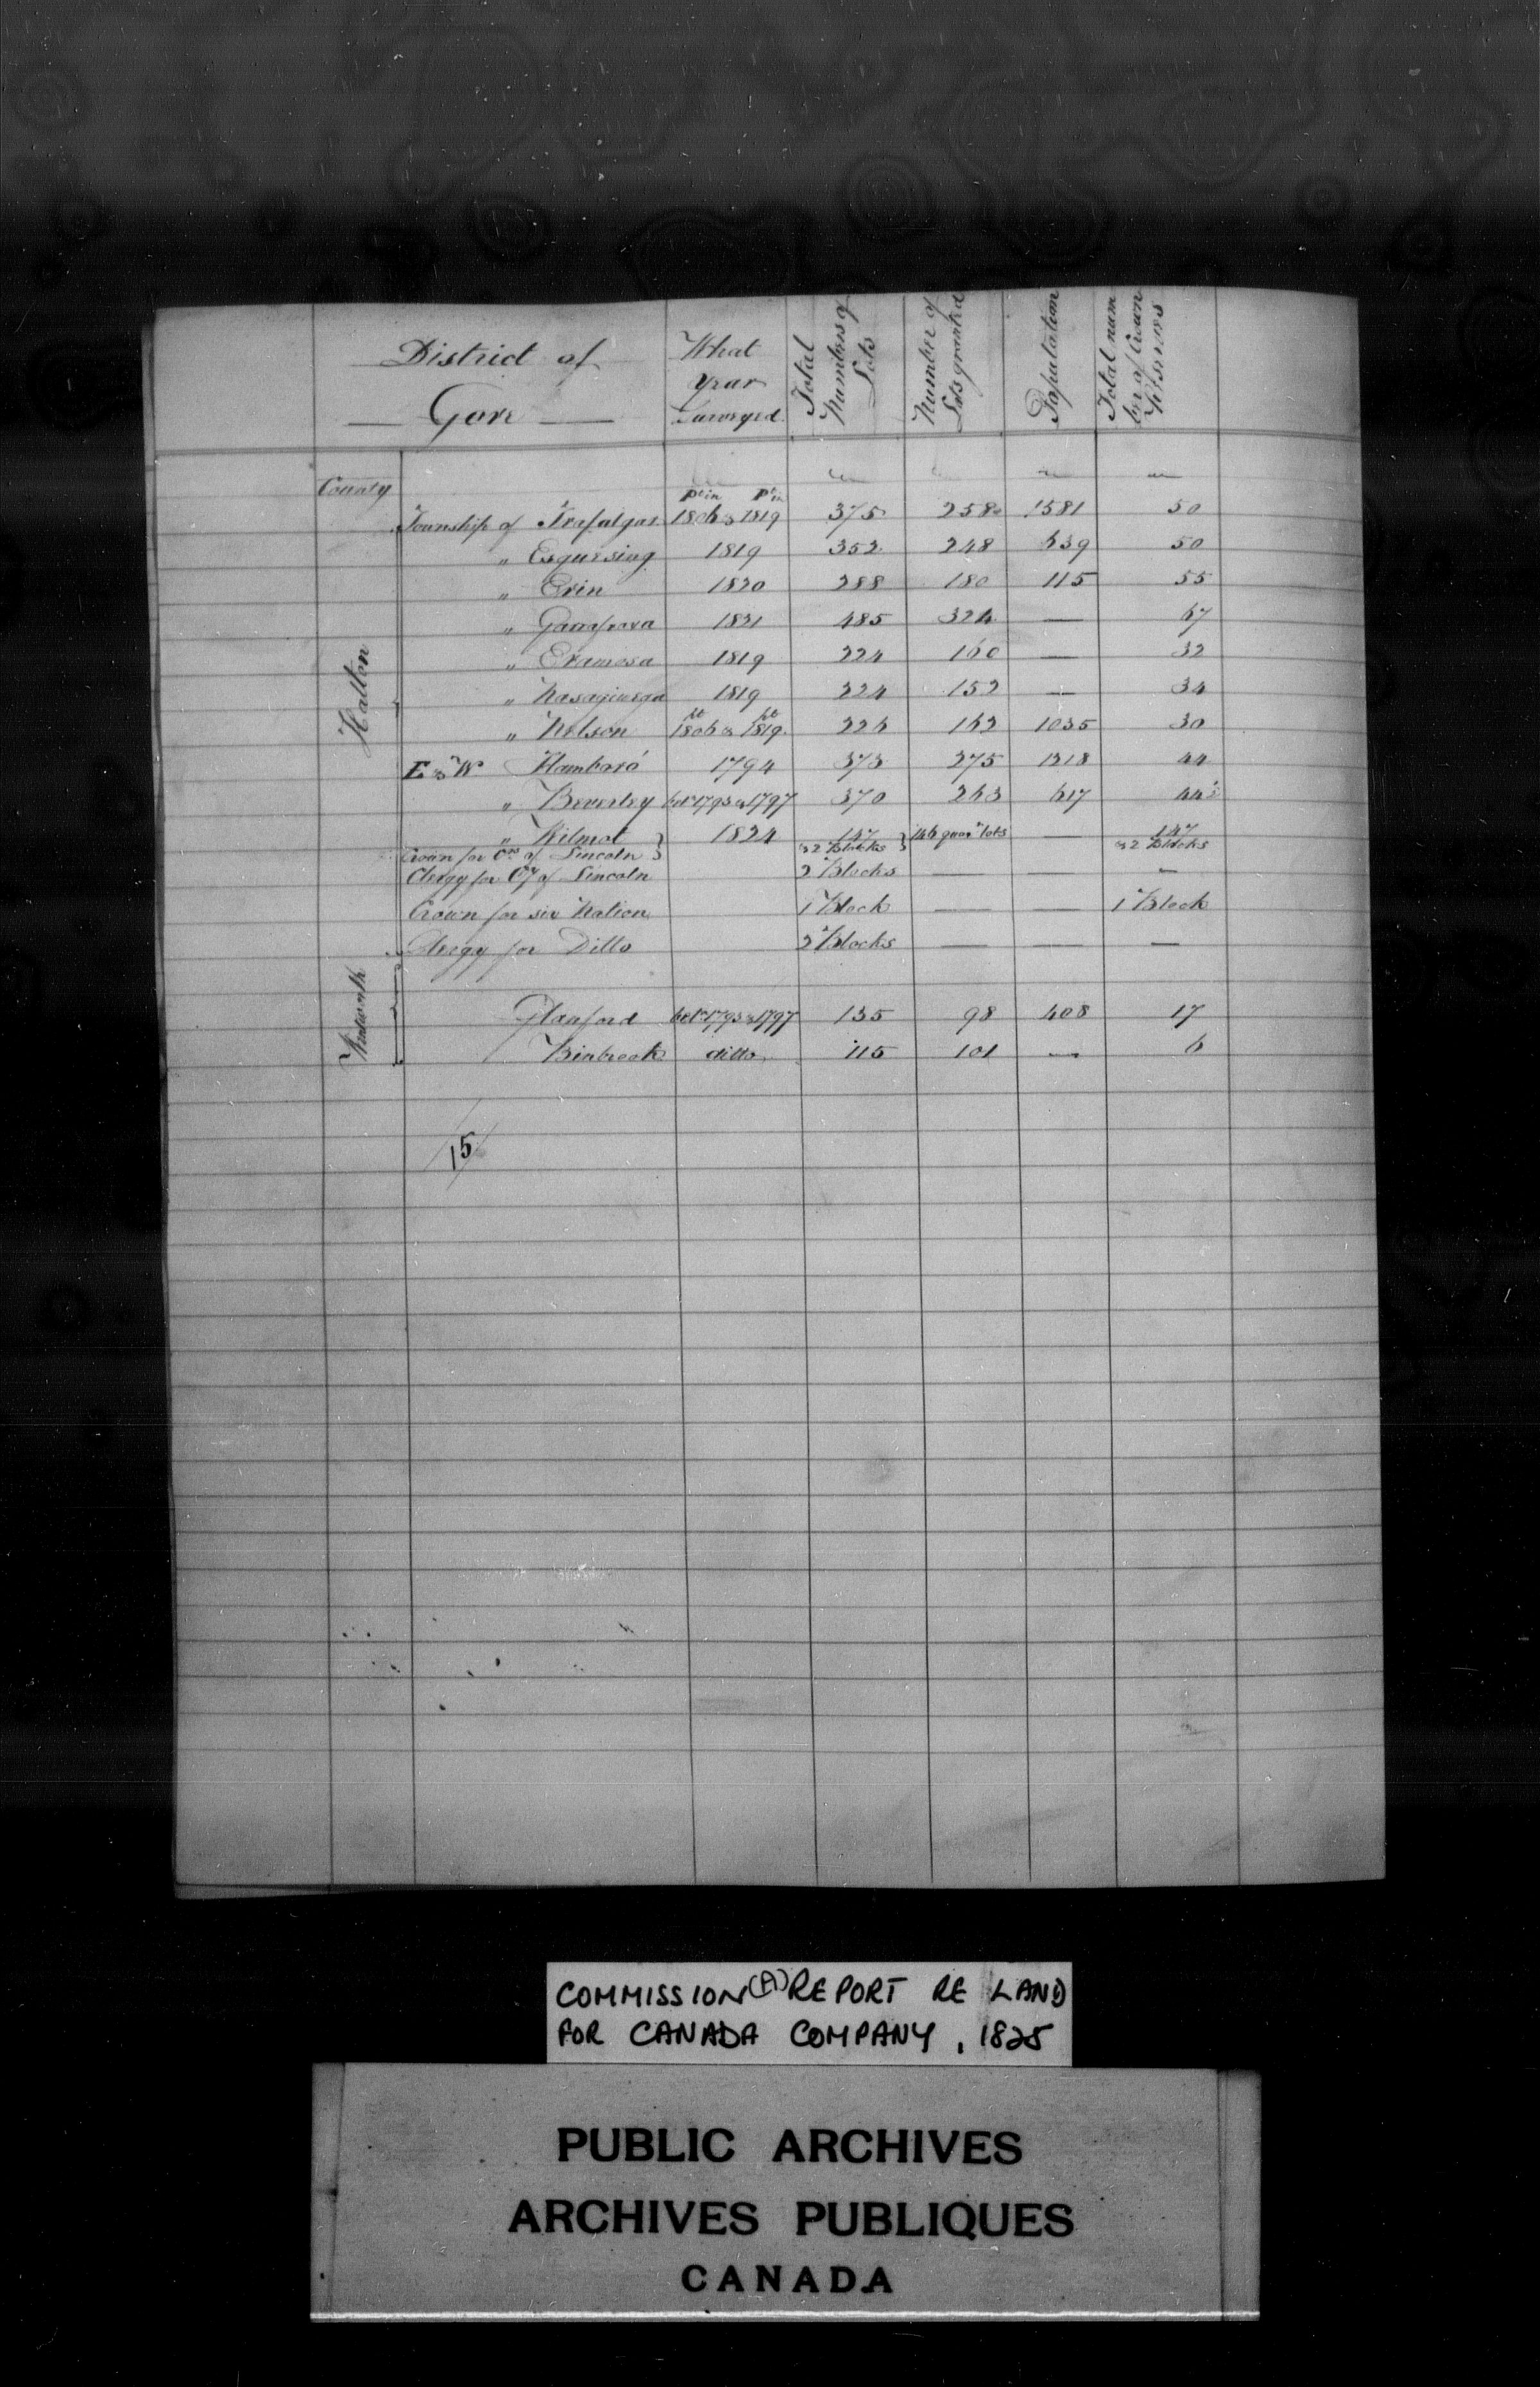 District of
Gore
What year Surveyed
Total Numbers of Lots
Number of Lots granted
Population
Total number of Crown Reserves
County
Halton
pt in pt in
Township of Trafalgar 1806 & 1819 375 258 1581 50
" Esquesing 1819 352 248 639 50
" Erin 1820 288 180 115 55
" Garafraxa 1821 485 324 — 67
" Eramosa 1819 224 160 — 32
" Nasagiweya 1819 224 152 — 34
pt pt
" Nelson 1806 & 1819 226 162 1035 30
E & W Flamboro' 1794 373 275 1318 44
" Beverley betn 1793 & 1797 370 263 617 44
" Wilmot 1824 147 146 quar lots — 147
Crown for Co of Lincoln & 2 Blocks & 2 Blocks
Clergy for Cy of Lincoln 2 Blocks — — —
Crown for six Nation 1 Block — — 1 Block
Clergy for Ditto 2 Blocks — — —
Wentworth
Glanford betn 1793 & 1797 135 98 408 17
Binbrook ditto 115 101 — 6
15
COMMISSION (A) REPORT RE LAND
FOR CANADA COMPANY, 1825
PUBLIC ARCHIVES
ARCHIVES PUBLIQUES
CANADA